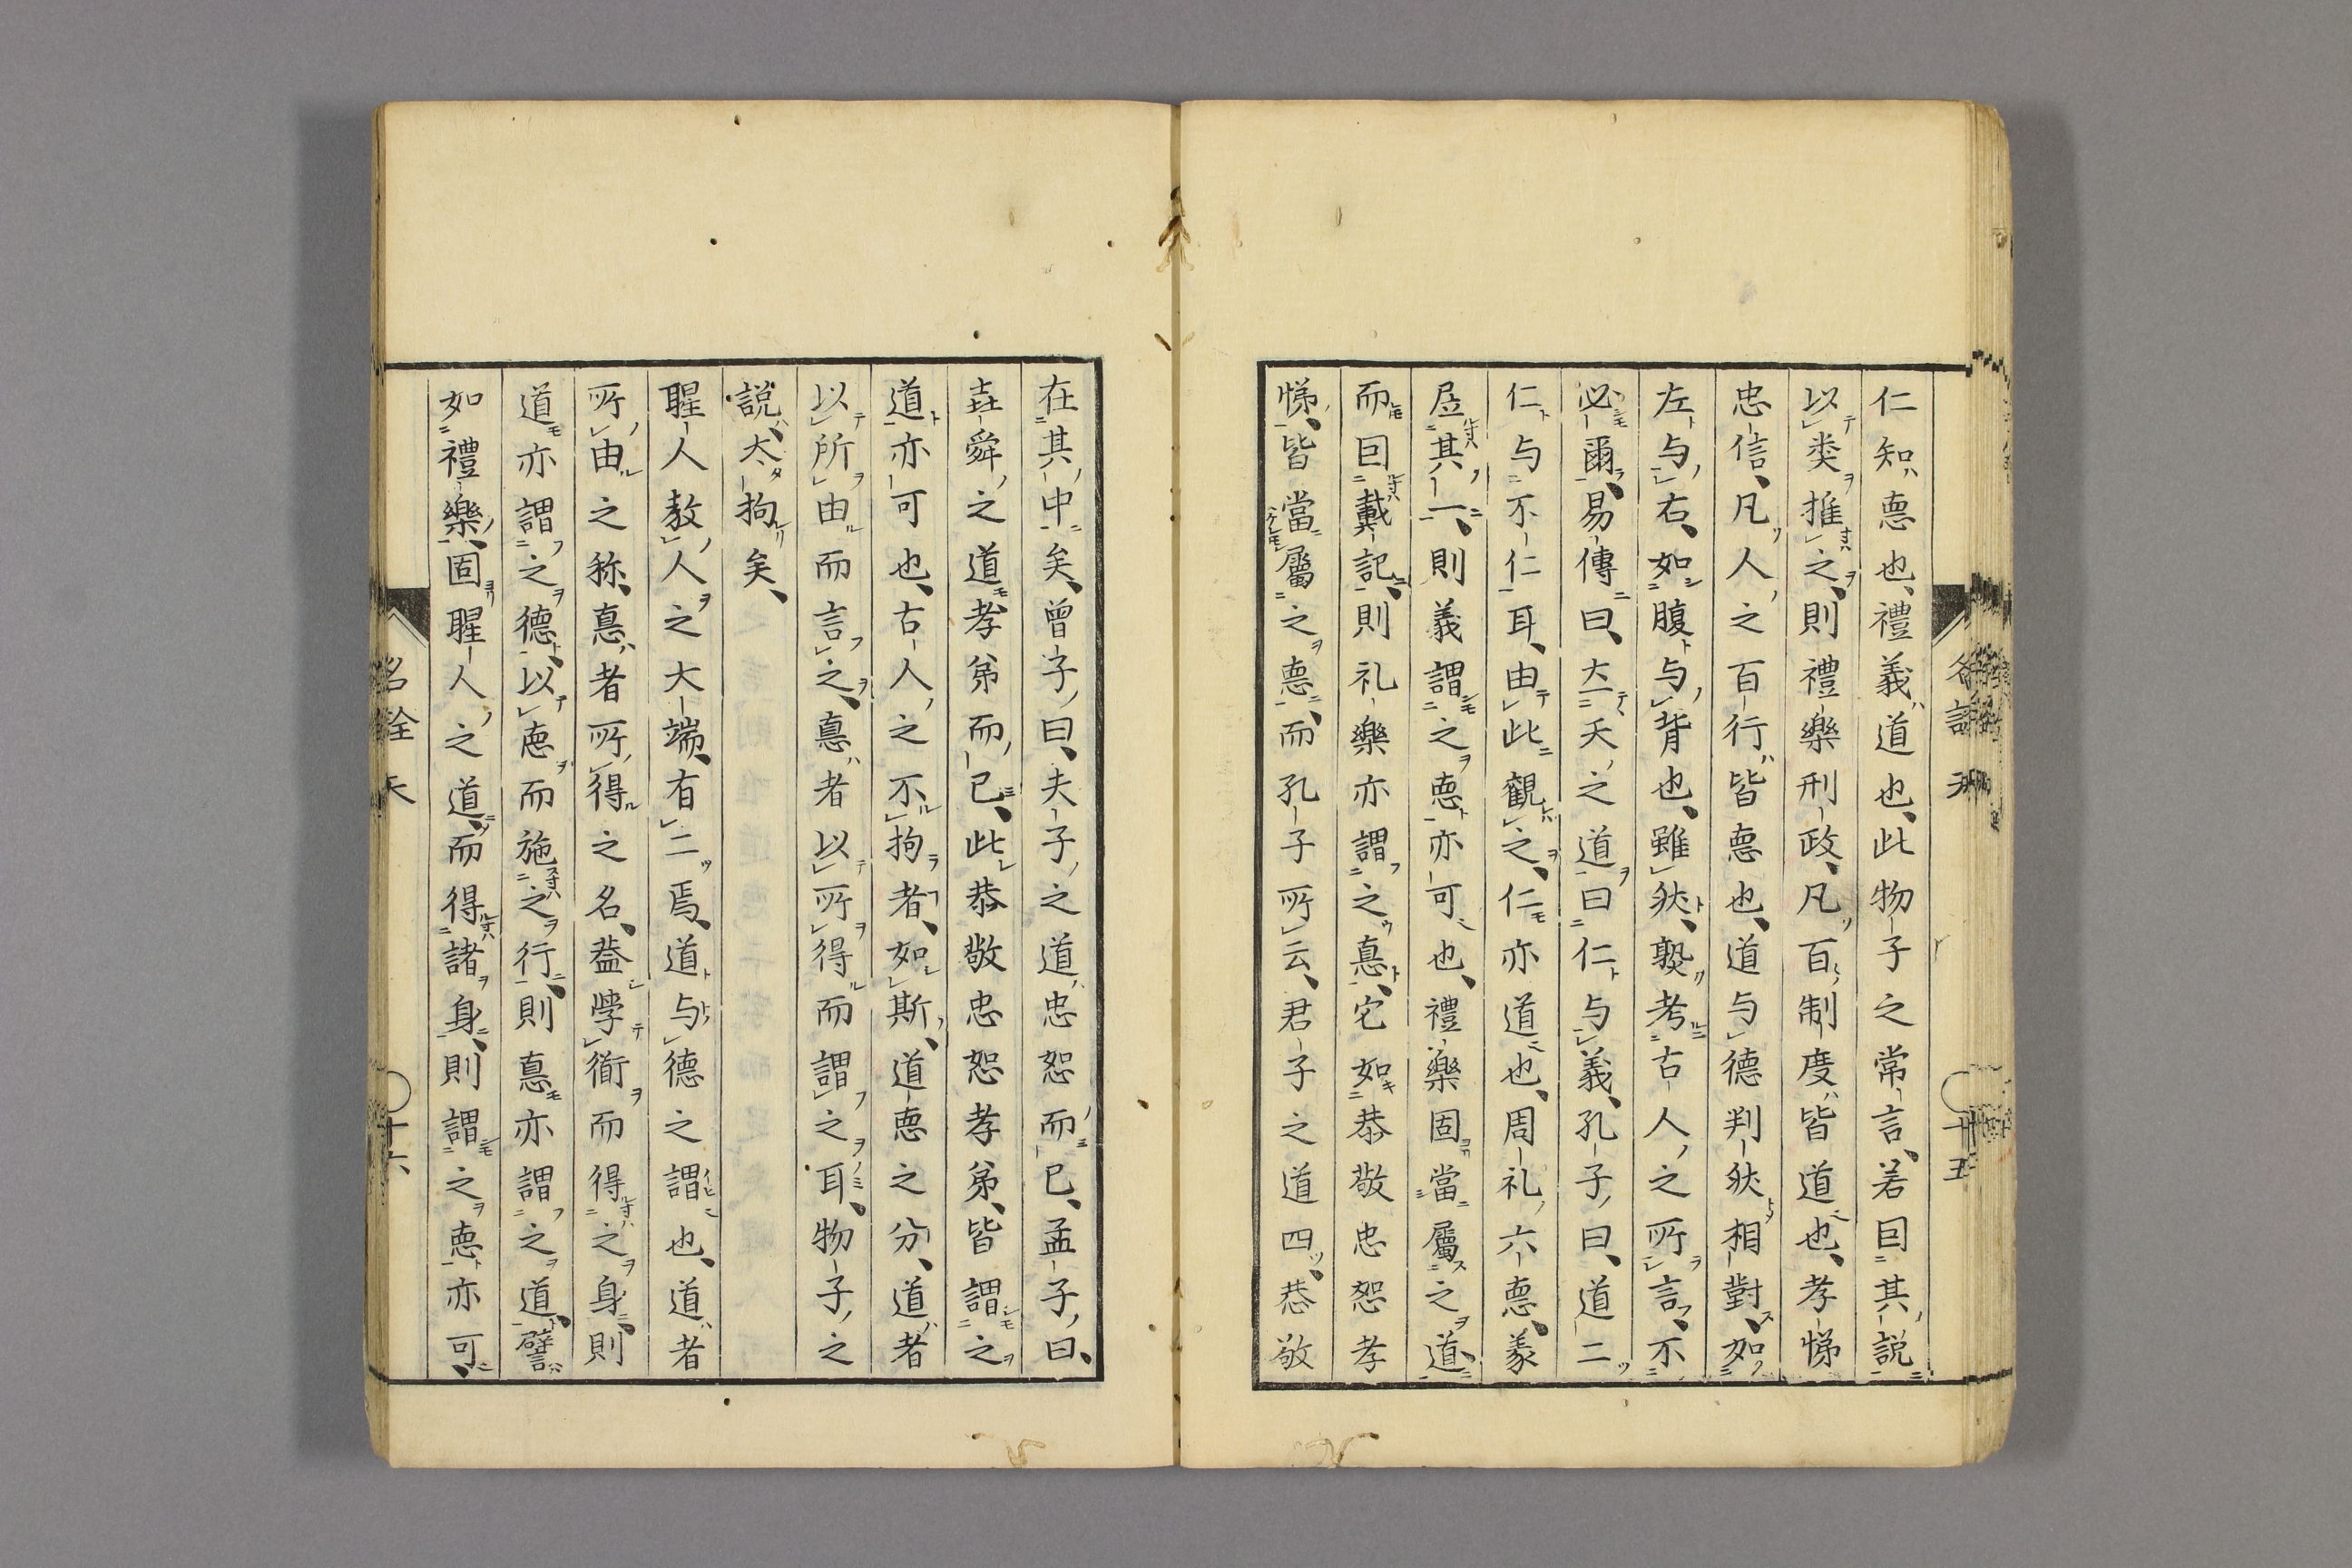 仁知悳也、禮義道也、此物子之常言、若因其説
以类推之、則禮樂刑政、凡百制度皆道也、孝悌
忠信、凡人之百行皆悳也、道与德判狀相對、如
左与右、如腹与背也、雖狀、孰考古人之所言、不
必爾、易傳曰、大天之道曰仁与義、孔子曰、道二
仁与不仁耳、由此觀之、仁亦道也、周礼六悳、義
居其一、則義謂之悳亦可也、禮樂固當屬之道、
而因戴記、則礼樂亦謂之悳、它如恭敬忠恕孝
悌、皆當屬之悳、而孔子所云、君子之道四、恭敬
在其中矣、曾子曰、夫子之道忠恕而已、孟子曰、
堯舜之道孝弟而已、此恭敬忠恕孝弟、皆謂之
道亦可也、古人之不拘者、如斯、道悳之分、道者
以所由而言之、悳者以所得而謂之耳、物子之
説、太拘矣、
聖人教人之大端、有二焉、道与德之謂也、道者
所由之称、悳者所得之名、葢學衜而得之身、則
道亦謂之德、以悳而施之行、則悳亦謂之道、譬
如禮樂、固聖人之道、而得諸身、則謂之悳亦可、
名詮 天
十五
名詮 天
十六